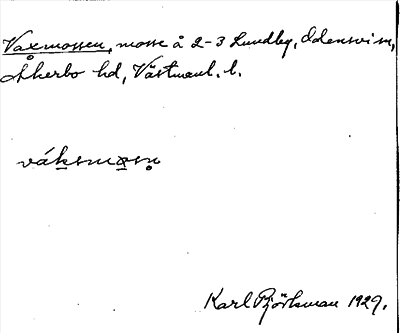 Vaxmossen, mosse å 2-3 Lundby, Odensvi sn,
Åkerbo hd, Västmanl. l.
váksmosn̥
Karl Björkman 1929.